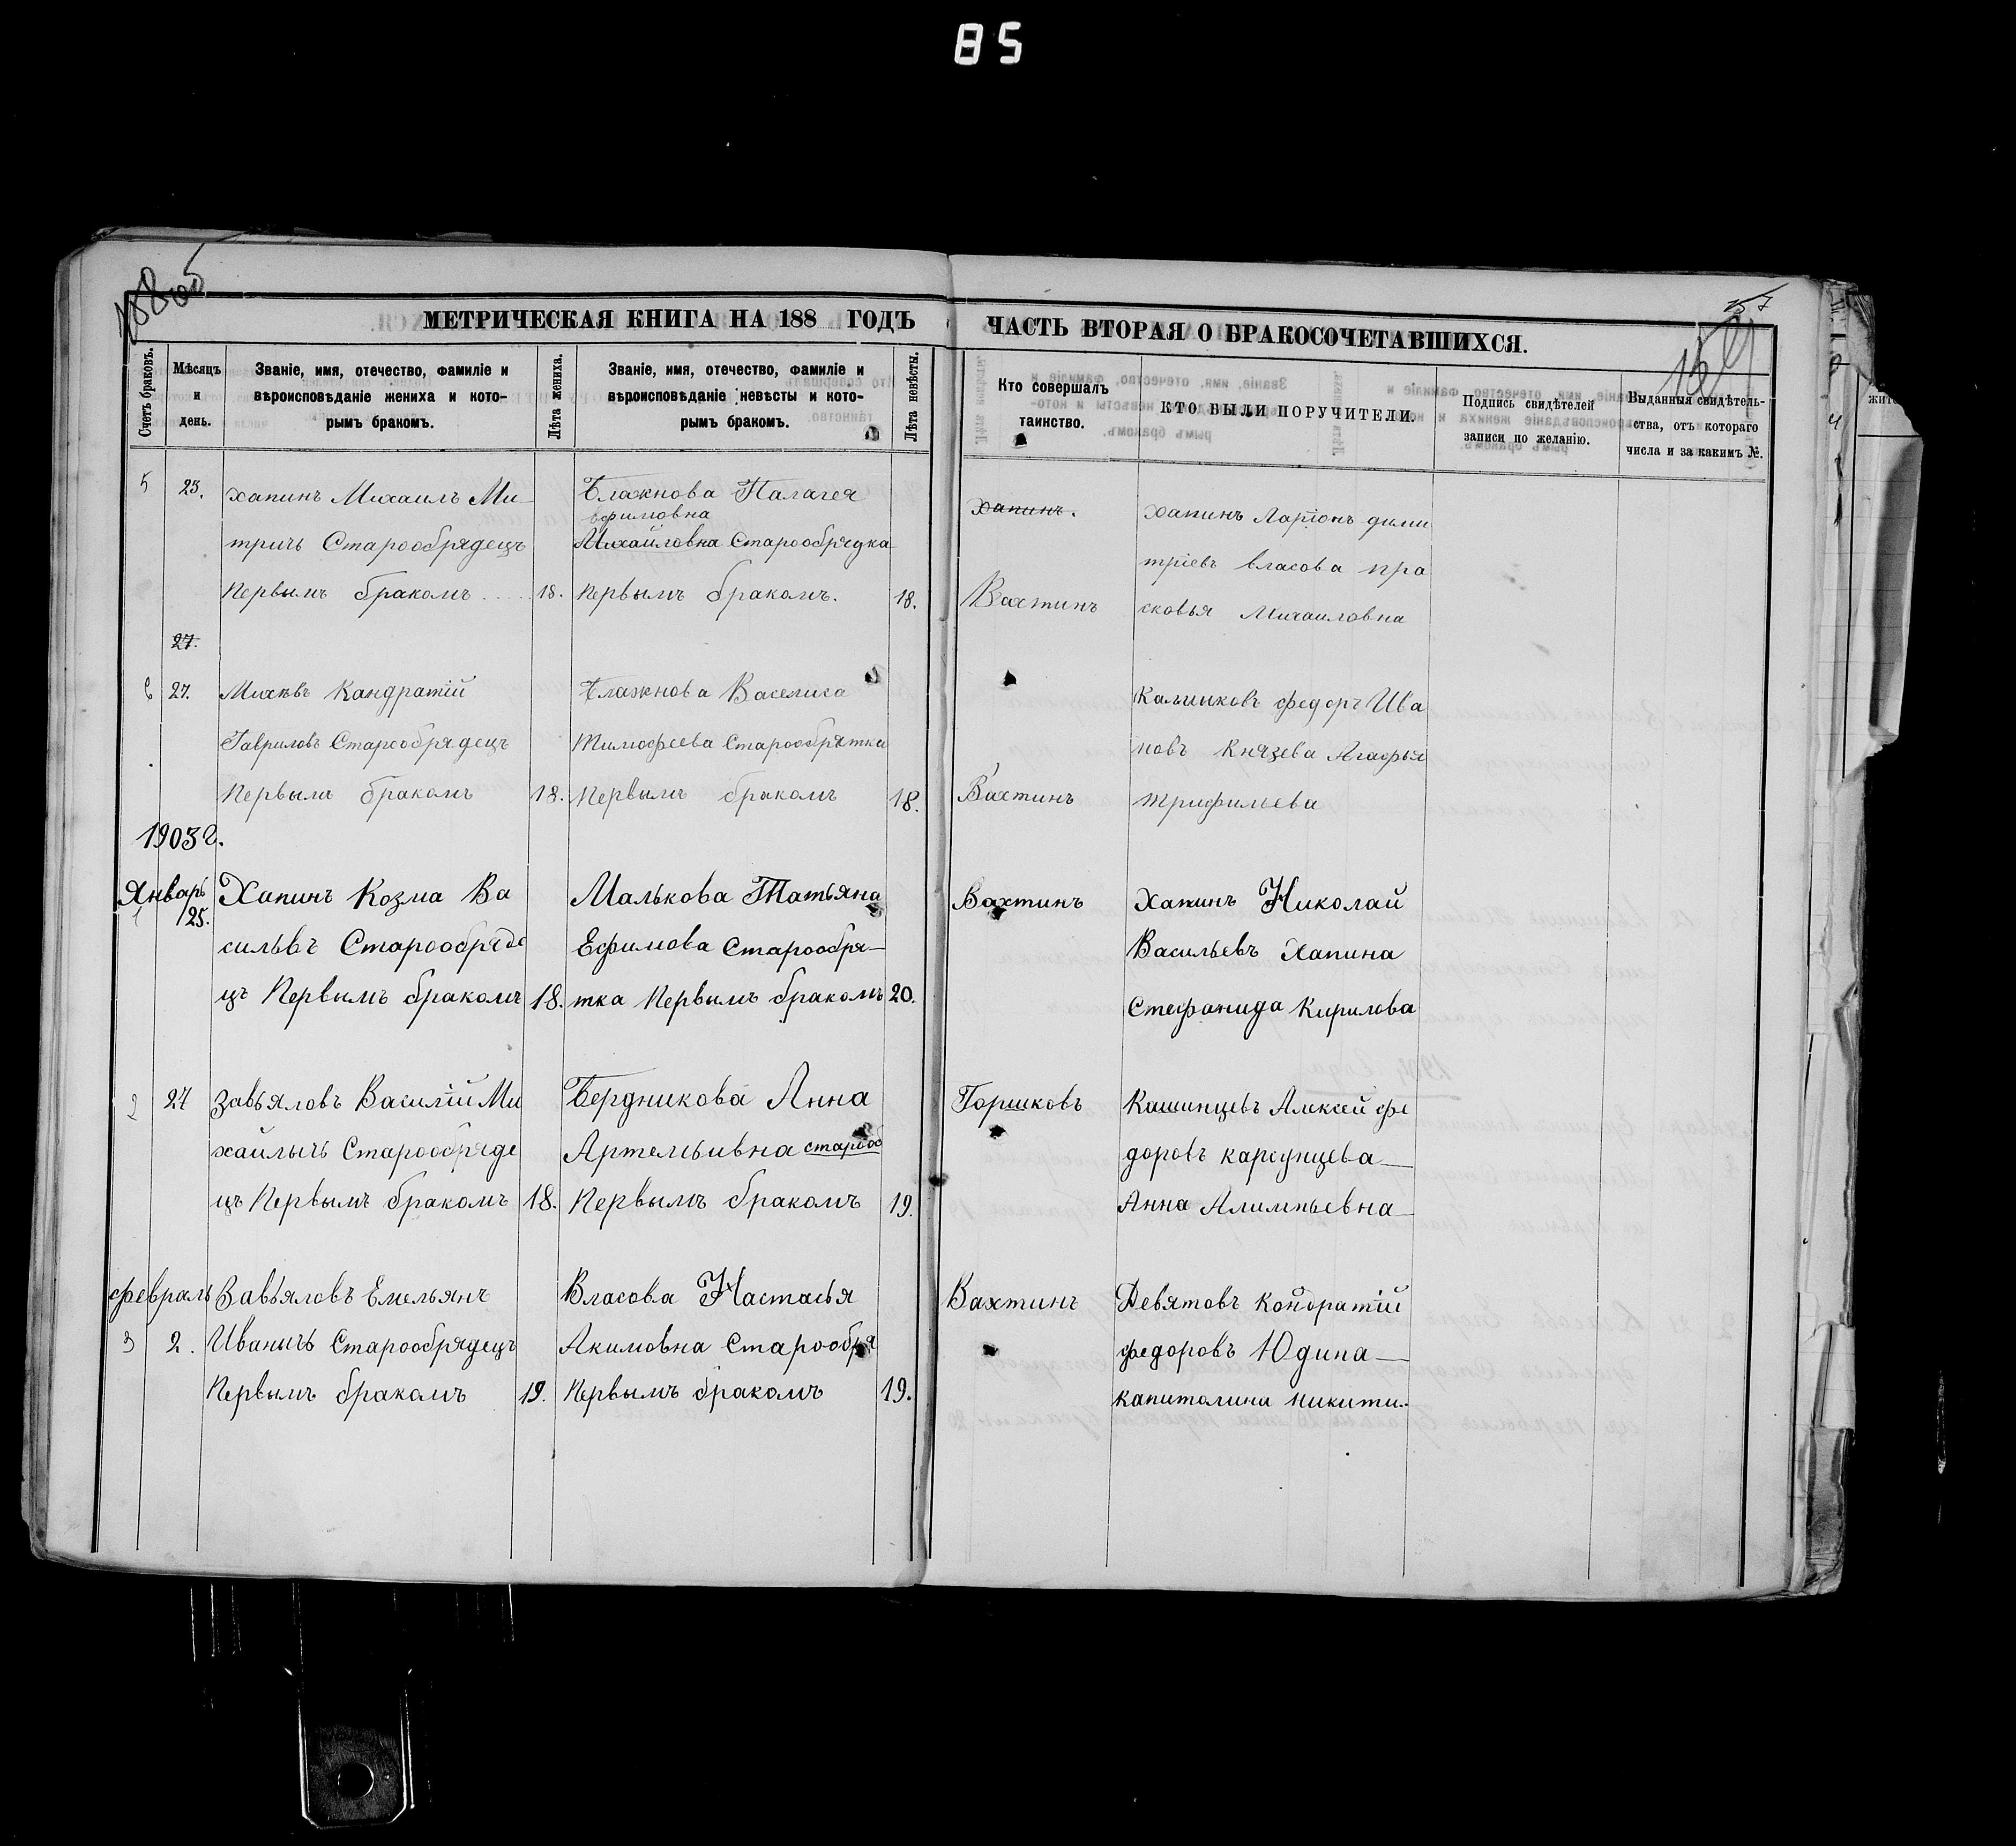 85
МЕТРИЧЕСКАЯ КНИГА НА 188 ГОДЪ
ЧАСТЬ ВТОРАЯ О БРАКОСОЧЕТАВШИХСЯ.
Счетъ браковъ.
Мѣсяцъ
и
день.
Званіе, имя, отечество, фамиліе и
вѣроисповѣданіе жениха и кото-
рымъ бракомъ.
Лѣта жениха.
Званіе, имя, отечество, фамиліе и
вѣроисповѣданіе невѣсты и кото-
рымъ бракомъ.
Лѣта невѣсты.
Кто совершалъ
таинство.
КТО БЫЛИ ПОРУЧИТЕЛИ.
Подпись свидѣтелей
записи по желанію.
Выданныя свидѣтель-
ства, отъ котораго
числа и за какимъ №.
5
25.
хапинъ Михаилъ Ми-
тричь Старообрядецъ
Первымъ бракомъ
18.
Блажнова Палагея
ефимовна
Михайловна Старообрядка
Первымъ бракомъ.
18.
Хапинъ.
Вахтинъ
Хапинъ Ларіонъ дими
тріевъ власова пра
сковья Михаиловна
27.
6
27.
Кандратій
Гавриловъ Старообрядецъ
Первымъ бракомъ
18.
Блажнова Васелиса
Тимофеева Старообрятка
Первымъ бракомъ
18.
Вахтинъ
Калинковъ федоръ Ива
новъ Князева Агафья
трифильева
1903 г.
Январь
1
25.
Хапинъ Козма Ва
сильвъ Старообряде
цъ Первымъ бракомъ
18.
Малькова Татьяна
Ефимова Старообря-
тка Первымъ бракомъ
20.
Вахтинъ
Хапинъ Николай
Васильевъ Хапина
Стефанида Кирилова
2
27
Завьяловъ Василій Ми
хайлычь Старообряде
цъ Первымъ бракомъ
18.
Бердникова Анна
Артемьивна старооб
Первымъ бракомъ
19.
Горшковъ
Кашинцевъ Алексей фе
доровъ карсунцева
Анна Алимпьевна
февраль
3
2.
Завьяловъ Емельянъ
Иванычъ Старообрядецъ
Первымъ бракомъ
19.
Власова Настасья
Акимовна Старообря
Первымъ бракомъ
19.
Вахтинъ
Девятовъ кондратій
федоровъ Юдина
капитолина никити..